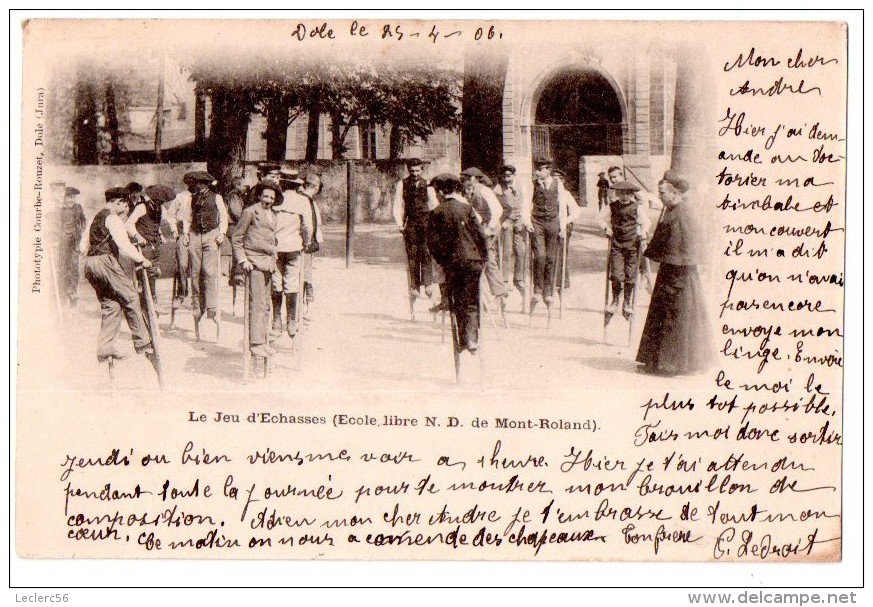 Dole le 25-4-06.
Phototypie Courbe-Rouzet, Dole (Jura)
Mon cher
Andre
Hier j'ai dem-
ande au Vic-
torier ma
timbale et
mon couvert
il m'a dit
qu'on n'avai
pas encore
envoye mon
linge. Envoie
le moi le
plus tot possible.
Fais moi donc sortir
Le Jeu d'Echasses (Ecole libre N. D. de Mont-Roland).
jeudi ou bien viens me voir a 1 heure. Hier je t'ai attendu
pendant toute la journée pour te montrer mon brouillon de
composition. Adieu mon cher Andre je t'embrasse de tout mon
cœur. Ce matin on nous a comende des chapeaux. Ton frere C. Ledroit
Leclerc56
www.delcampe.net